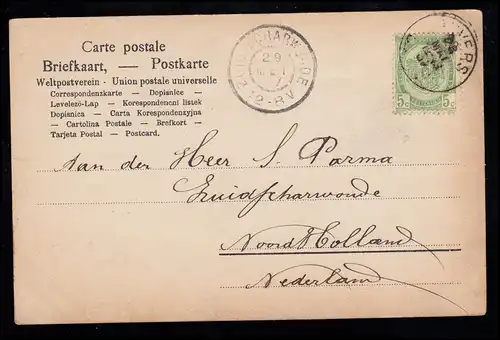 Carte postale
Briefkaart, — Postkarte
Weltpostverein - Union postale universelle
Correspondenzkarte — Dopisnice —
Levelező-Lap — Korespondenčni listek
Dopisnica — Carta Korespondenzyjna
— Cartolina Postale — Brefkort —
Tarjeta Postal — Postcard.
29
12-8V
VERS
5c 5c
Aan der Heer S. Parma
Zuidscharwoude
Noord Holland
Nederland